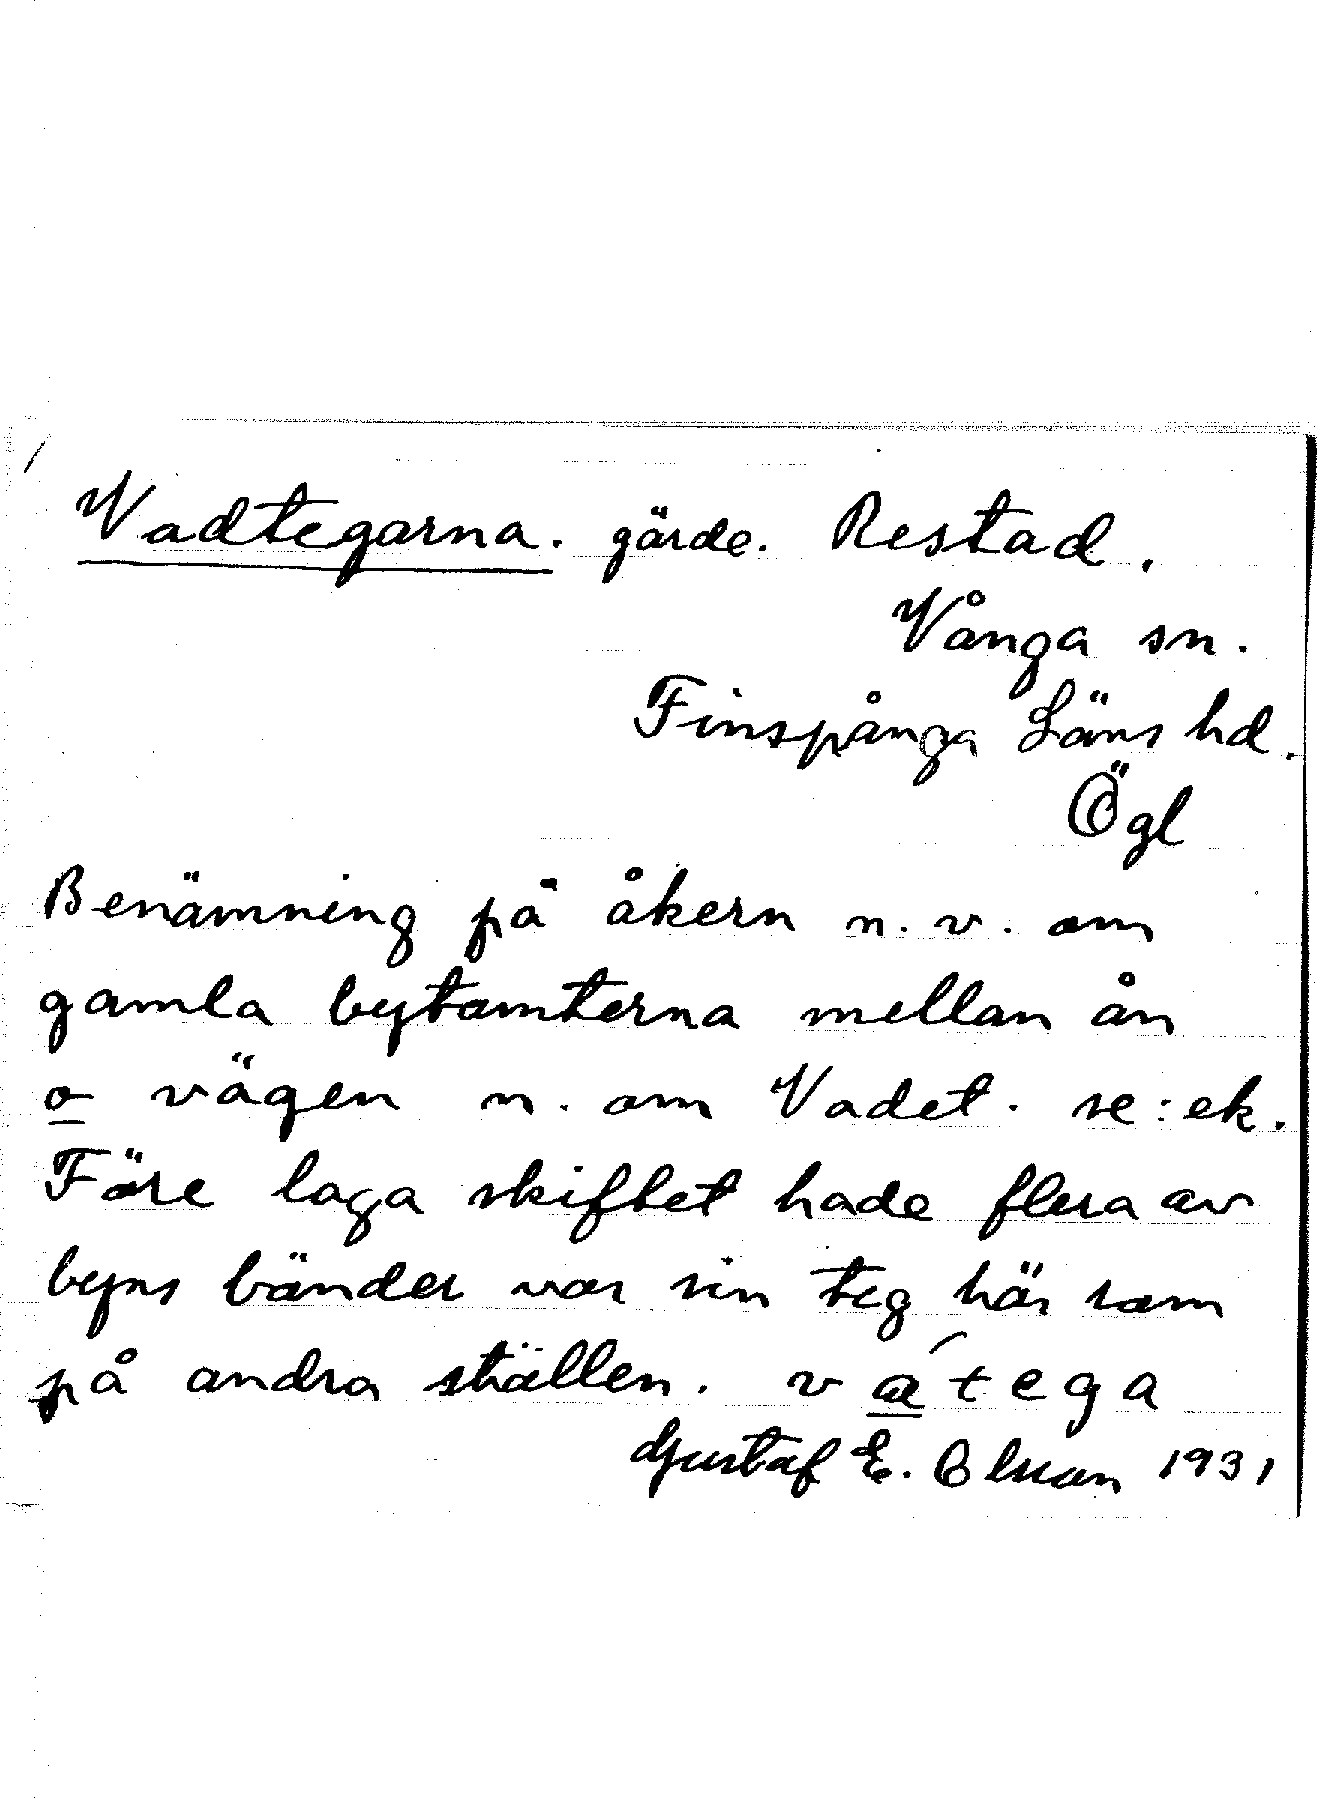 Vadtegarna. gärde. Restad.
Vånga sn.
Finspånga Läns hd.
Ögl
Benämning på åkern n.v. om
gamla bytomterna mellan ån
o vägen n. om Vadet. se: ek.
Före laga skiftet hade flera av
byns bönder var sin teg här som
på andra ställen. vátega
Gustaf E. Olsson 1931